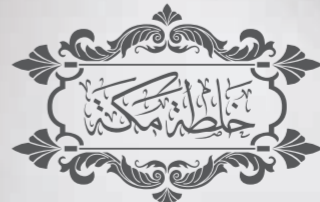 خلطة مكة